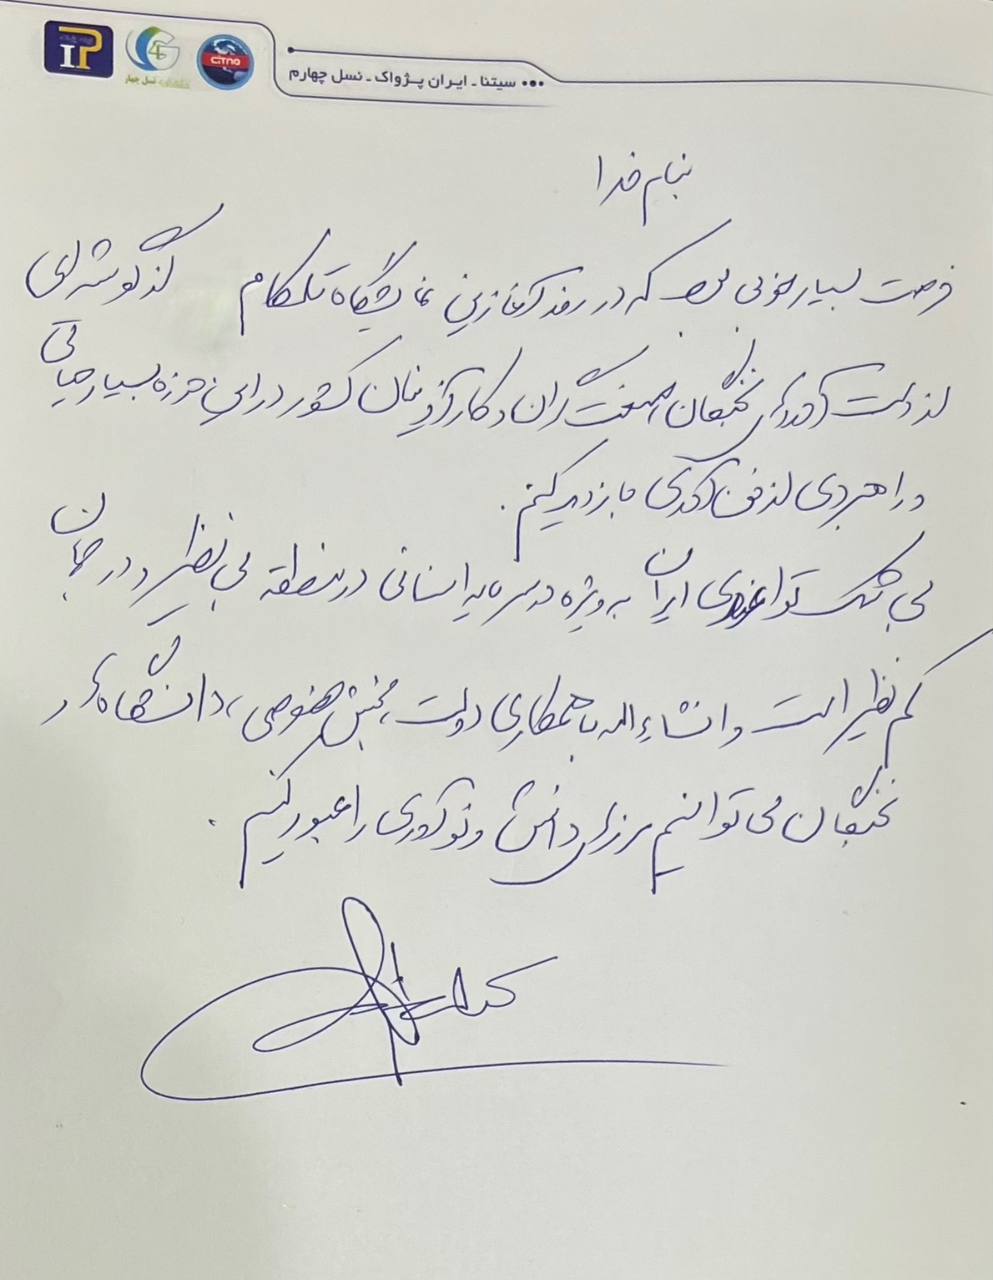 سیتنا ـ ایران پژواک ـ نسل چهارم
CITNA
نسل چهار
بنام خدا
فرصت بسیار خوبی بود که در روز آغازین نمایشگاه تلکام از گوشه‌ای
از دست آوردهای نخبگان، صنعت گران و کارآفرینان کشور در این حوزه بسیار حیاتی
و راهبردی از فن آوری بازدید کنم.
بی شک توانمندی ایران به ویژه در سرمایه انسانی در منطقه بی نظیر و در جهان
کم نظیر است و انشاءالله با همکاری دولت، بخش خصوصی، دانشگاه‌ها و
نخبگان می توانیم مرزهای دانش و نوآوری را عبور کنیم.